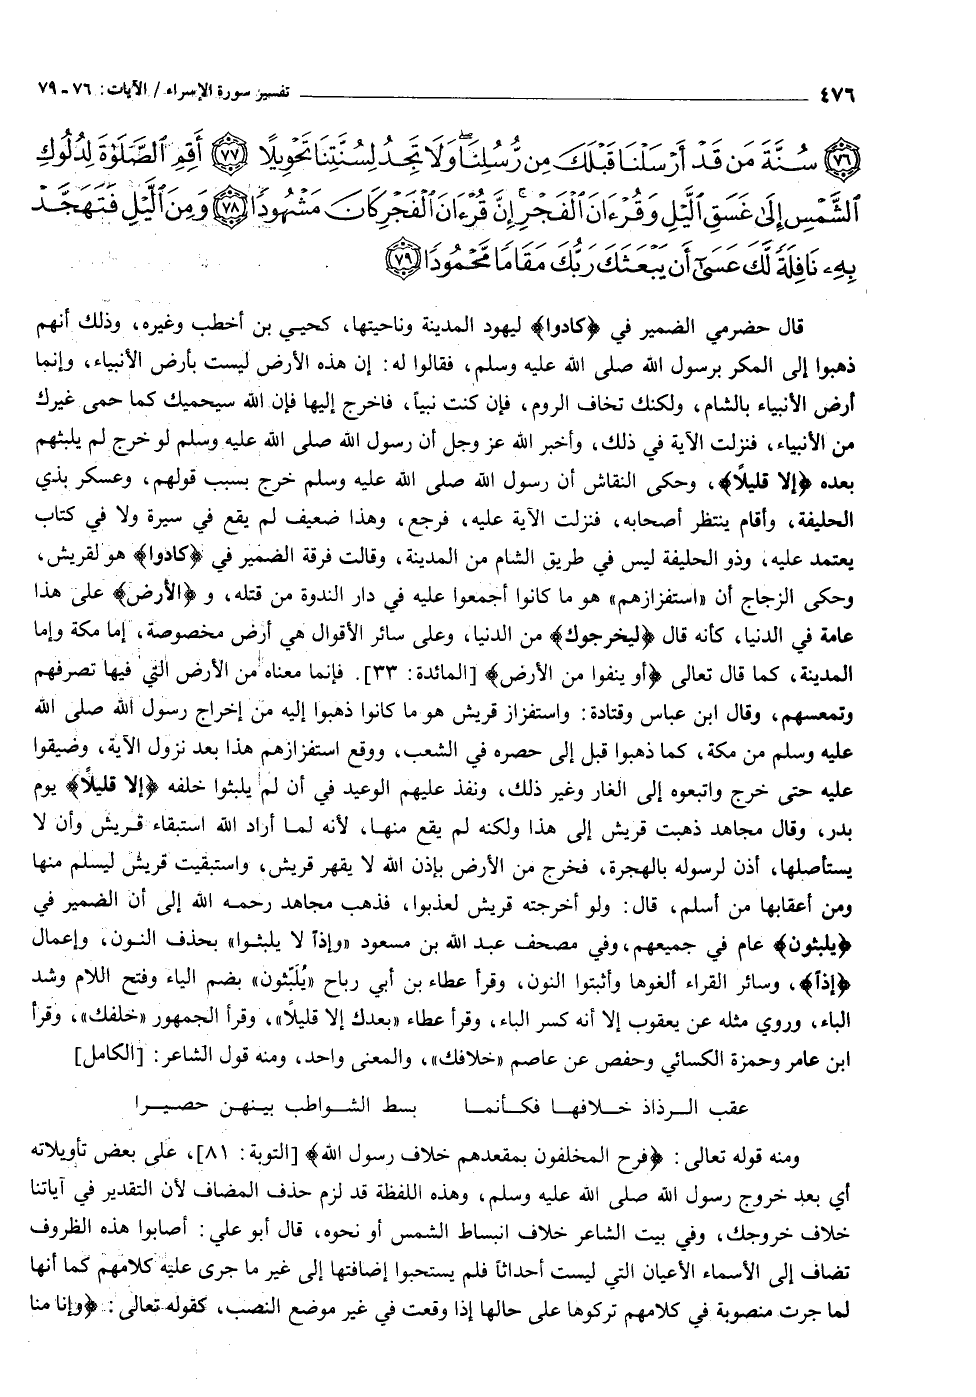 ٤٧٦ تفسير سورة الإسراء / الآيات: ٧٦ - ٧٩
﴿٧٦﴾ سُنَّةَ مَن قَدْ أَرْسَلْنَا قَبْلَكَ مِن رُّسُلِنَا وَلَا تَجِدُ لِسُنَّتِنَا تَحْوِيلًا ﴿٧٧﴾ أَقِمِ الصَّلَوٰةَ لِدُلُوكِ
الشَّمْسِ إِلَىٰ غَسَقِ الَّيْلِ وَقُرْءَانَ الْفَجْرِ إِنَّ قُرْءَانَ الْفَجْرِ كَانَ مَشْهُودًا ﴿٧٨﴾ وَمِنَ الَّيْلِ فَتَهَجَّدْ
بِهِۦ نَافِلَةً لَّكَ عَسَىٰٓ أَن يَبْعَثَكَ رَبُّكَ مَقَامًا مَّحْمُودًا ﴿٧٩﴾
قال حضرمي الضمير في ﴿كادوا﴾ ليهود المدينة وناحيتها، كحيي بن أخطب وغيره، وذلك أنهم
ذهبوا إلى المكر برسول الله صلى الله عليه وسلم، فقالوا له: إن هذه الأرض ليست بأرض الأنبياء، وإنما
أرض الأنبياء بالشام، ولكنك تخاف الروم، فإن كنت نبياً، فاخرج إليها فإن الله سيحميك كما حمى غيرك
من الأنبياء، فنزلت الآية في ذلك، وأخبر الله عز وجل أن رسول الله صلى الله عليه وسلم لو خرج لم يلبثهم
بعده ﴿إلا قليلاً﴾، وحكى النقاش أن رسول الله صلى الله عليه وسلم خرج بسبب قولهم، وعسكر بذي
الحليفة، وأقام ينتظر أصحابه، فنزلت الآية عليه، فرجع، وهذا ضعيف لم يقع في سيرة ولا في كتاب
يعتمد عليه، وذو الحليفة ليس في طريق الشام من المدينة، وقالت فرقة الضمير في ﴿كادوا﴾ هو لقريش،
وحكى الزجاج أن «استفزازهم» هو ما كانوا أجمعوا عليه في دار الندوة من قتله، و ﴿الأرض﴾ على هذا
عامة في الدنيا، كأنه قال ﴿ليخرجوك﴾ من الدنيا، وعلى سائر الأقوال هي أرض مخصوصة، إما مكة وإما
المدينة، كما قال تعالى ﴿أو ينفوا من الأرض﴾ [المائدة: ٣٣]. فإنما معناه من الأرض التي فيها تصرفهم
وتمعسهم، وقال ابن عباس وقتادة: واستفزاز قريش هو ما كانوا ذهبوا إليه من إخراج رسول الله صلى الله
عليه وسلم من مكة، كما ذهبوا قبل إلى حصره في الشعب، ووقع استفزازهم هذا بعد نزول الآية، وضيقوا
عليه حتى خرج واتبعوه إلى الغار وغير ذلك، ونفذ عليهم الوعيد في أن لم يلبثوا خلفه ﴿إلا قليلاً﴾ يوم
بدر، وقال مجاهد ذهبت قريش إلى هذا ولكنه لم يقع منها، لأنه لما أراد الله استبقاء قريش وأن لا
يستأصلها، أذن لرسوله بالهجرة، فخرج من الأرض بإذن الله لا يقهر قريش، واستبقيت قريش ليسلم منها
ومن أعقابها من أسلم، قال: ولو أخرجته قريش لعذبوا، فذهب مجاهد رحمه الله إلى أن الضمير في
﴿يلبثون﴾ عام في جميعهم، وفي مصحف عبد الله بن مسعود «وإذاً لا يلبثوا» بحذف النون، وإعمال
﴿إذاً﴾، وسائر القراء ألغوها وأثبتوا النون، وقرأ عطاء بن أبي رباح «يُلَبّثون» بضم الياء وفتح اللام وشد
الباء، وروي مثله عن يعقوب إلا أنه كسر الباء، وقرأ عطاء «بعدك إلا قليلاً»، وقرأ الجمهور «خلفك»، وقرأ
ابن عامر وحمزة الكسائي وحفص عن عاصم «خلافك»، والمعنى واحد، ومنه قول الشاعر: [الكامل]
عقب الرذاذ خلافها فكأنما بسط الشواطب بينهن حصيرا
ومنه قوله تعالى: ﴿فرح المخلفون بمقعدهم خلاف رسول الله﴾ [التوبة: ٨١]، على بعض تأويلاته
أي بعد خروج رسول الله صلى الله عليه وسلم، وهذه اللفظة قد لزم حذف المضاف لأن التقدير في آياتنا
خلاف خروجك، وفي بيت الشاعر خلاف انبساط الشمس أو نحوه، قال أبو علي: أصابوا هذه الظروف
تضاف إلى الأسماء الأعيان التي ليست أحداثاً فلم يستحبوا إضافتها إلى غير ما جرى عليه كلامهم كما أنها
لما جرت منصوبة في كلامهم تركوها على حالها إذا وقعت في غير موضع النصب، كقوله تعالى: ﴿وإنا منا